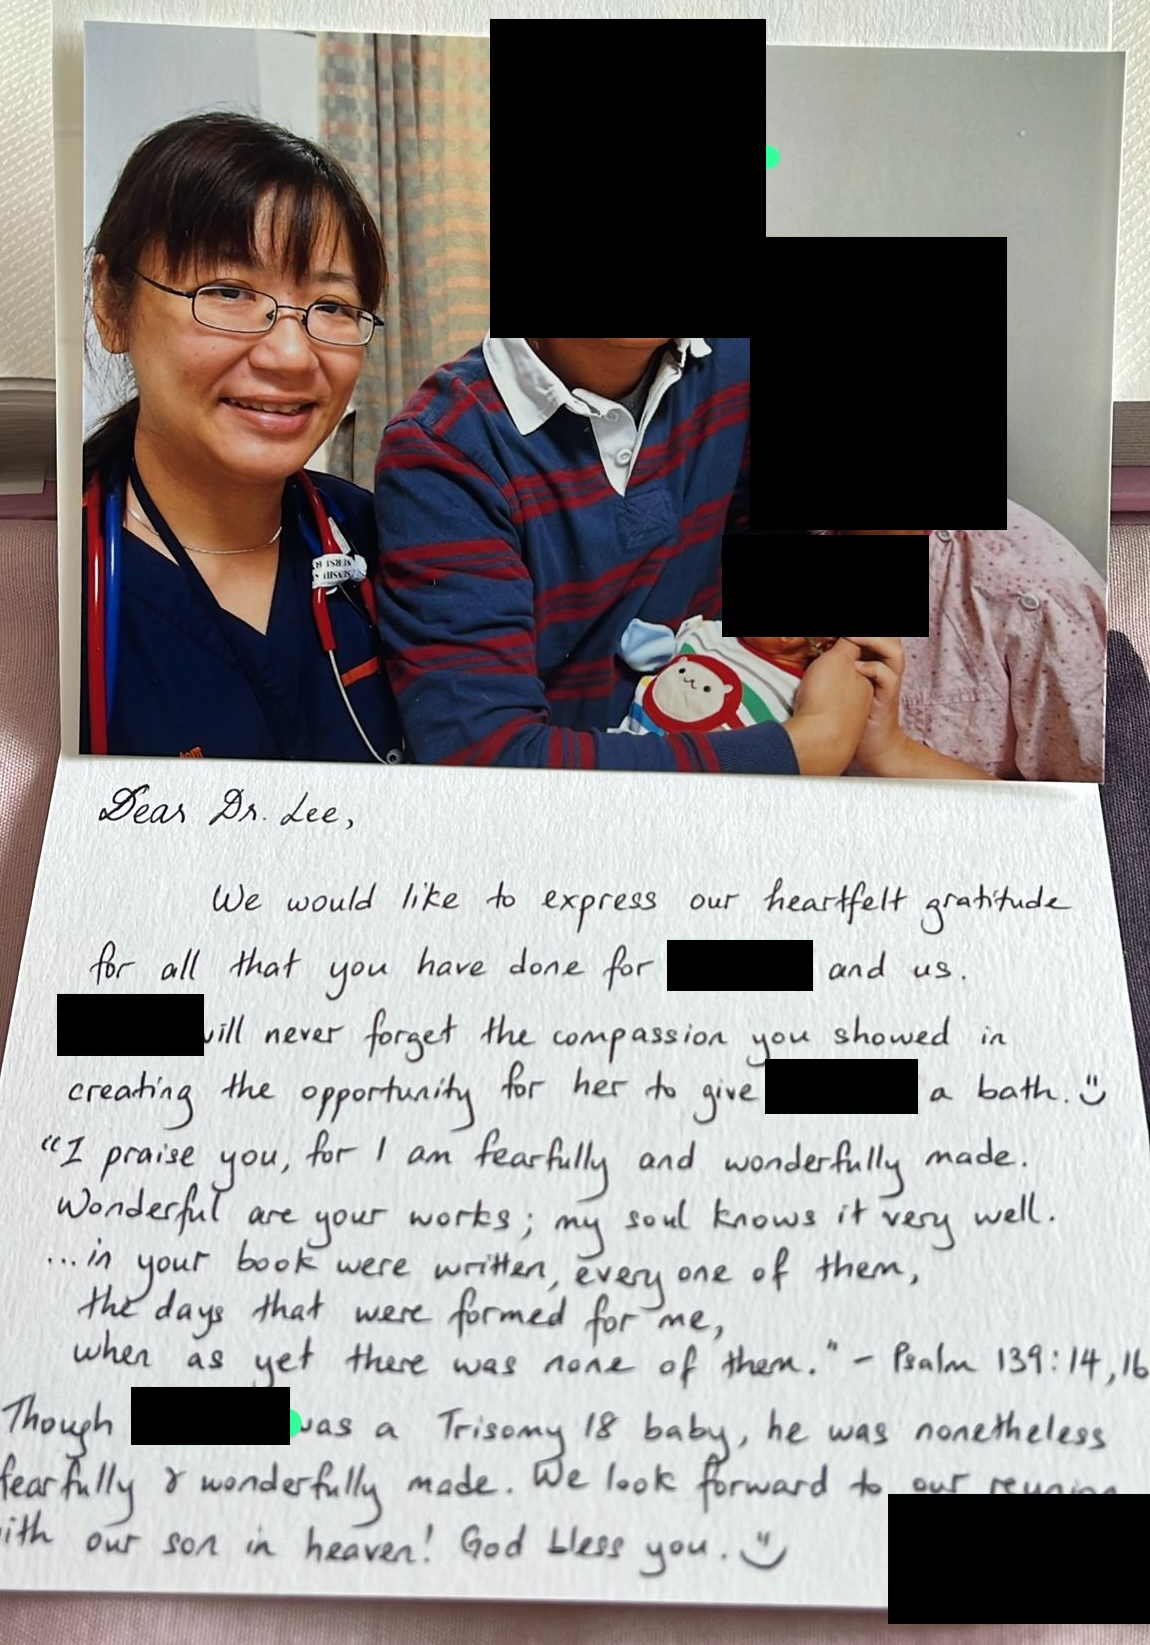 Dear Dr. Lee,
We would like to express our heartfelt gratitude
for all that you have done for and us.
will never forget the compassion you showed in
creating the opportunity for her to give a bath.
"I praise you, for I am fearfully and wonderfully made.
Wonderful are your works; my soul knows it very well.
...in your book were written, every one of them,
the days that were formed for me,
when as yet there was none of them." - Psalm 139:14,16
Though was a Trisomy 18 baby, he was nonetheless
fearfully & wonderfully made. We look forward to our reunion
with our son in heaven! God bless you.